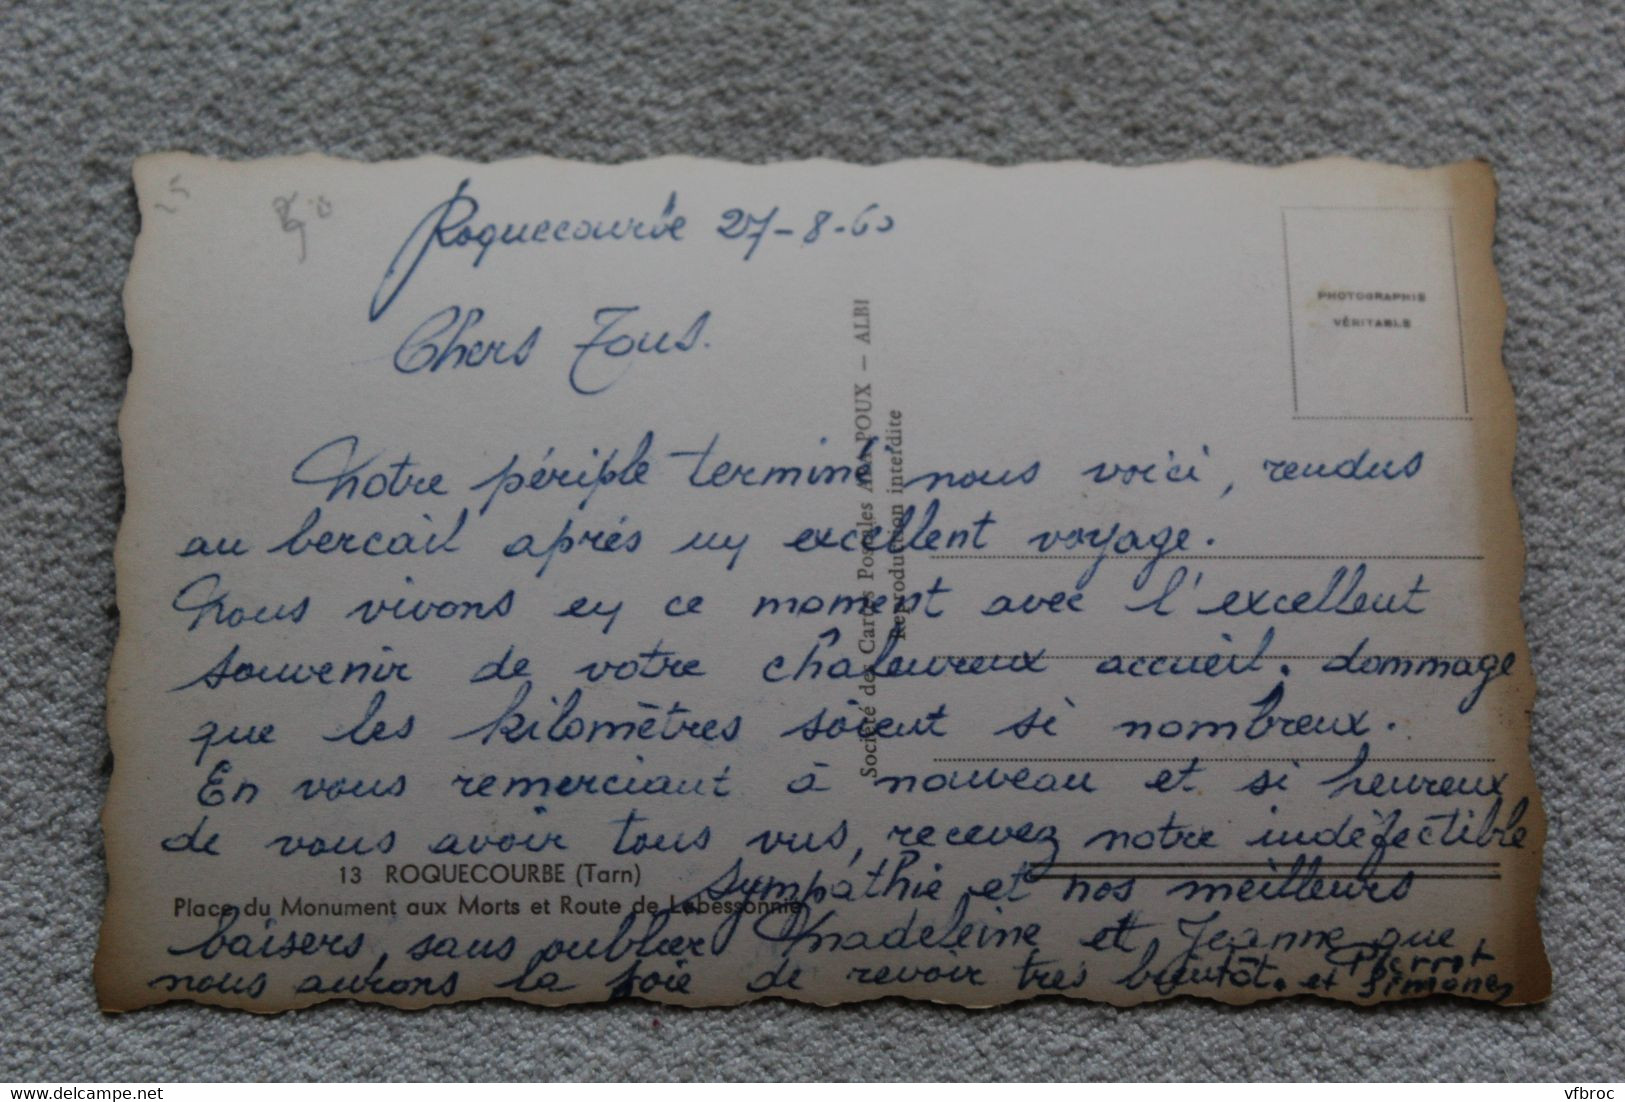 Roquecourbe 27-8-60
Chers Tous.
PHOTOGRAPHIE
VÉRITABLE
Notre périple terminé nous voici, rendus
au bercail après un excellent voyage.
Nous vivons en ce moment avec l'excellent
souvenir de votre chaleureux accueil. dommage
que les kilomètres soient si nombreux.
En vous remerciant à nouveau et si heureux
de vous avoir tous vus, recevez notre indéfectible
sympathie et nos meilleurs
baisers sans oublier Madeleine et Jeanne que
nous aurons la joie de revoir très bientôt.
Pierrot
et Simone
13 ROQUECOURBE (Tarn)
Place du Monument aux Morts et Route de Labessonnié
Société des Cartes Postales APA-POUX - ALBI
Reproduction interdite
Delcampe.net
vfbroc